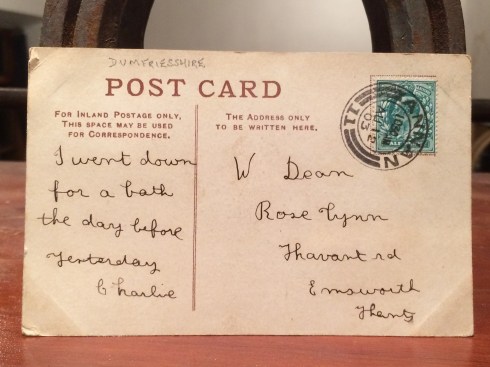 DUMFRIESSHIRE
POST CARD
FOR INLAND POSTAGE ONLY,
THIS SPACE MAY BE USED
FOR CORRESPONDENCE.
THE ADDRESS ONLY
TO BE WRITTEN HERE.
I went down
for a bath
the day before
yesterday
Charlie
W Dean
Rose Lynn
Havant rd
Emsworth
Hants
ANNAN